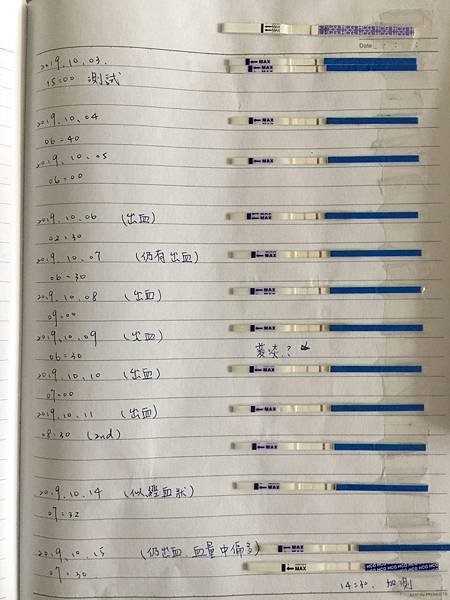 Date
2019.10.03
15:00 測試
MAX
MAX
2019.10.04
06:40
MAX
2019.10.05
06:00
MAX
2019.10.06 (出血)
02:30
MAX
2019.10.07 (仍有出血)
06:30
MAX
2019.10.08 (出血)
09:00
MAX
2019.10.09 (出血)
06:30
MAX
2019.10.10 (出血)
07:00
MAX
2019.10.11 (出血)
08:30 (2nd)
MAX
MAX
2019.10.14 (似經血狀)
07:32
MAX
2019.10.15 (仍出血.血量中偏多)
07:30
MAX
MAX
HCG HCG HCG HCG HCG
14:30. 加測